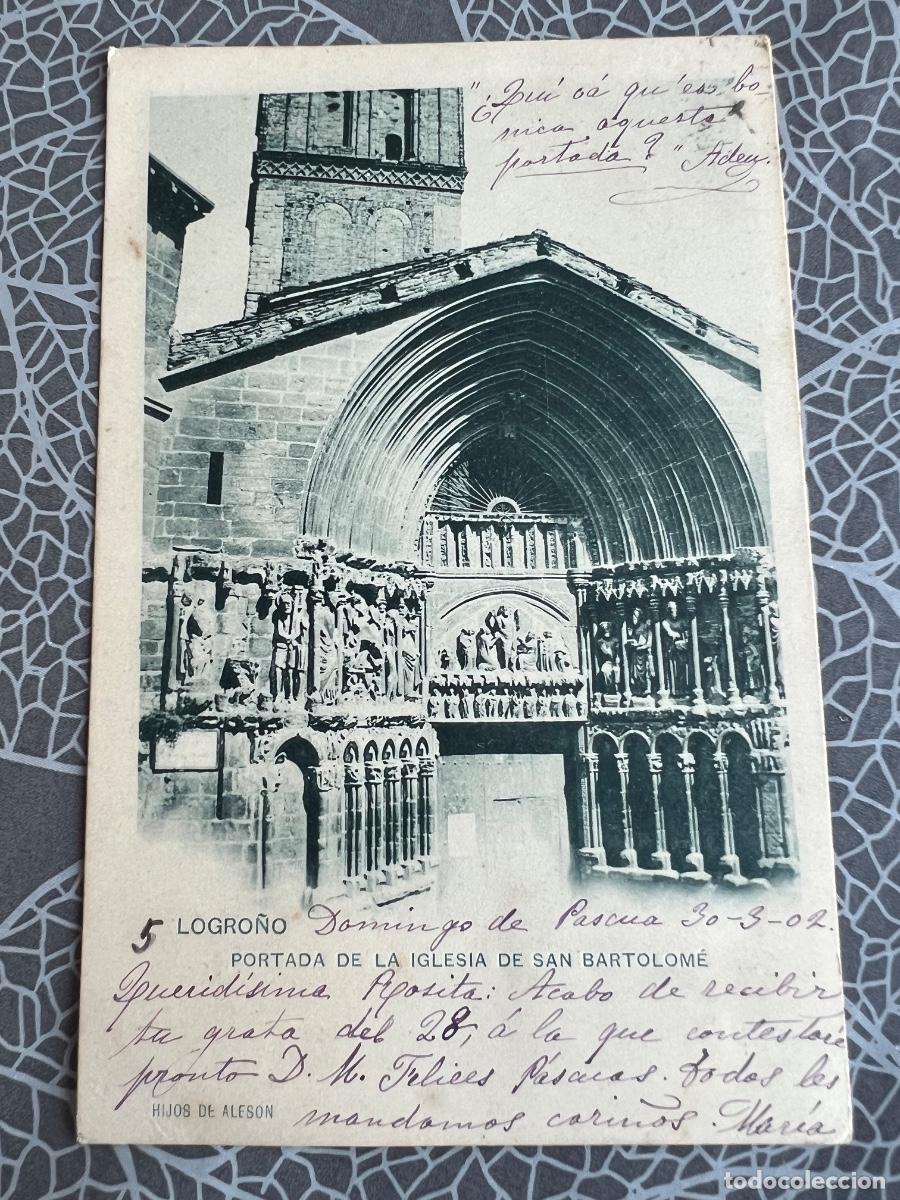 "¿Qui vá qu'es bo
nica aquesta
portada?" Adeu.
5 LOGROÑO Domingo de Pascua 30-3-02.
PORTADA DE LA IGLESIA DE SAN BARTOLOMÉ
Queridísima Rosita: Acabo de recibir
tu grata del 28, á la que contestaré
pronto D. M. Felices Páscuas. Todos les
mandamos cariños. María
HIJOS DE ALESON
todocoleccion